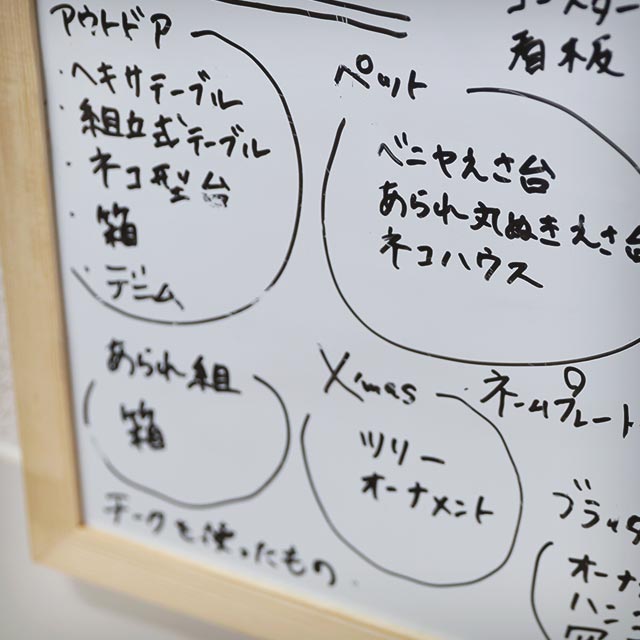 アウトドア
・ヘキサテーブル
・組立式テーブル
・ネコ型台
・箱
・デニム
あられ組
箱
チークを使ったもの
看板
ペット
ベニヤえさ台
あられ丸ぬきえさ台
ネコハウス
X'mas
ツリー
オーナメント
・ネームプレート
ブラック
オーナ
ハン